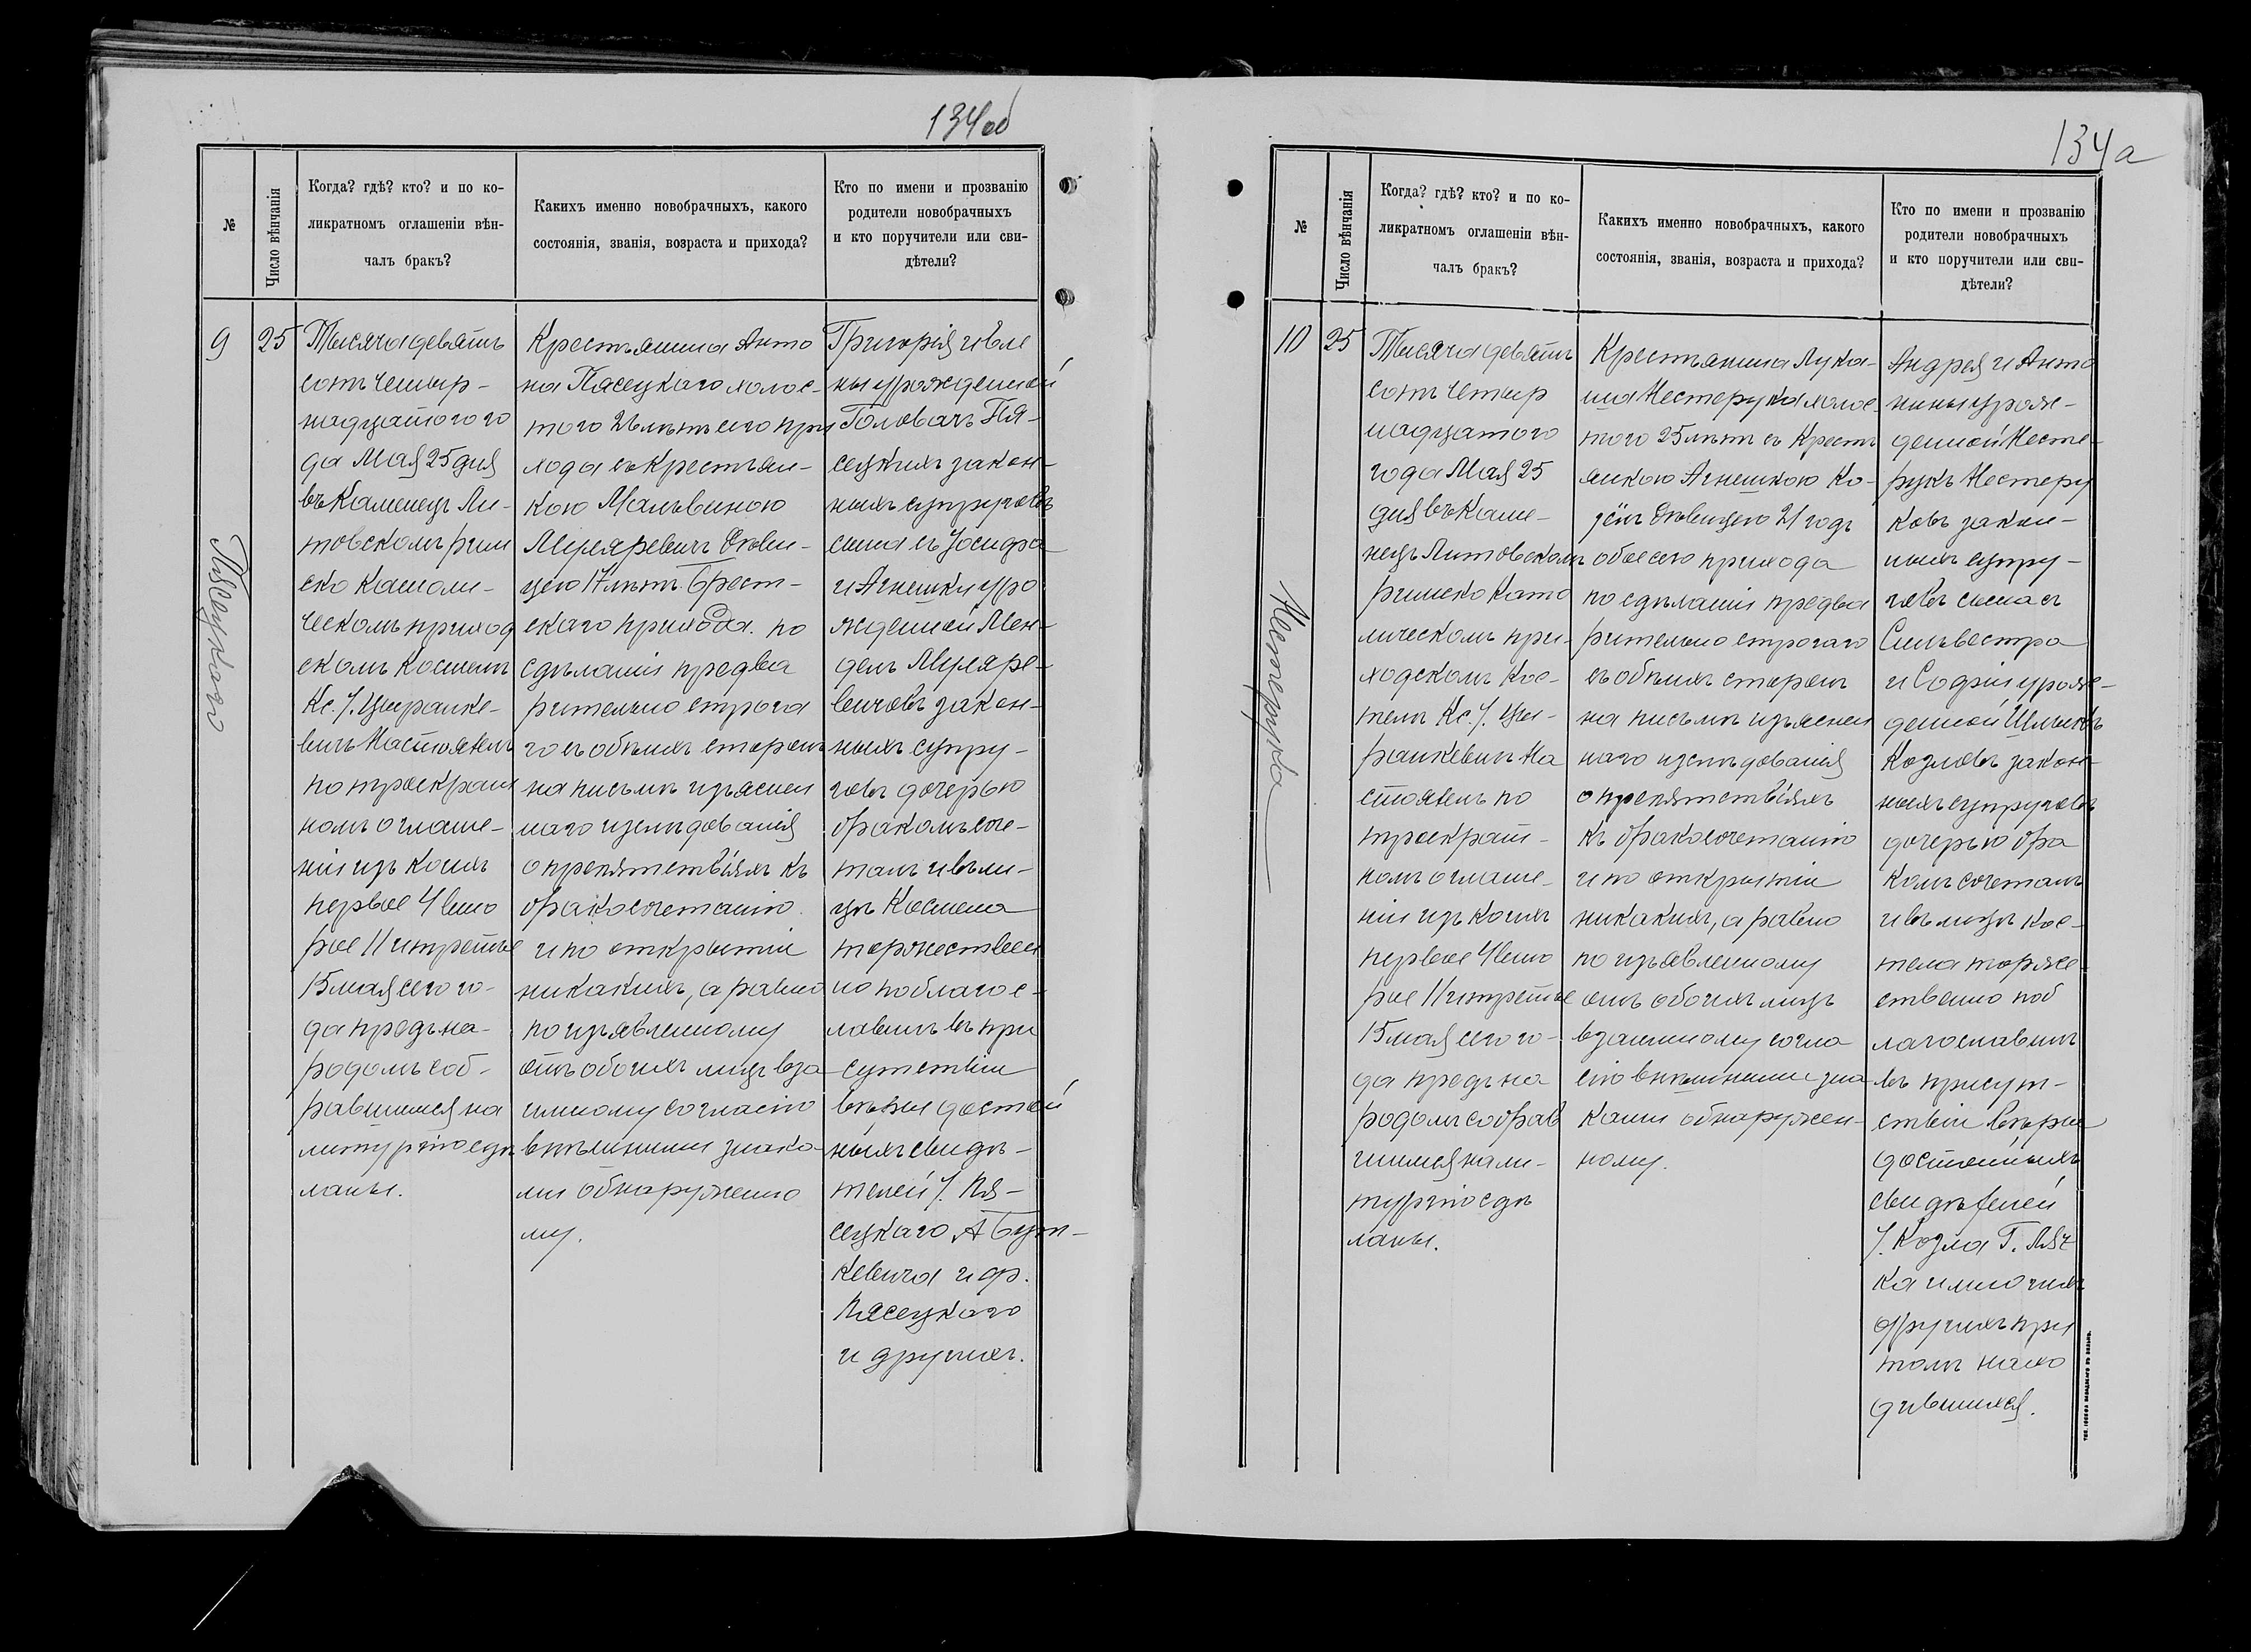 134об
№
Число вѣнчанія
Когда? гдѣ? кто? и по ко-
ликратномъ оглашеніи вѣн-
чалъ бракъ?
Какихъ именно новобрачныхъ, какого
состоянія, званія, возраста и прихода?
Кто по имени и прозванію
родители новобрачныхъ
и кто поручители или сви-
дѣтели?
9
25
Пясецкаго
Тысяча девять
сотъ четыр-
надцатого го
да Мая 25 дня
въ Каменецъ Ли-
товскомъ рим
ско католи-
ческомъ приход
скомъ костелѣ
Кс. І. Цыранке-
вичъ Настоятель
по троекрат
номъ оглаше-
ніи изъ коихъ
первое 4 вто
рое 11 и третье
15 мая сего го-
да предъ на-
родомъ соб-
равшимся на
литургію сдѣ
ланы.
Крестьянина Анто
на Пясецкаго холос-
того 26 лѣтъ сего при
хода съ Крестьян-
кою Мальвиною
Муляревичъ дѣви-
цею 17 лѣтъ Брест-
скаго прихода. по
сдѣланіи предва
рительно строга
го съ обѣихъ сторонъ
на письмѣ изъяснен
наго изслѣдованія
о препятствіяхъ къ
бракосочетанію
и по открытіи
никакихъ, а равно
по изъявленному
отъ обоихъ лицъ вза
имному согласію
внѣшними знака-
ми обнаружено
му.
Григорія и Еле
ны урожденной
Головачъ Пя-
сецкихъ закон-
ныхъ супруговъ
сына съ Іосифа
и Агнешки уро
жденной Мен-
дель Муляре-
вичовъ закон-
ныхъ супру-
говъ дочерью
бракомъ соче-
талъ и въ ли-
цѣ Костела
торжествен
но поблагос-
ловилъ въ при
сутствіи
вѣры достой
ныхъ свидѣ-
телей І. Пя-
сецкаго, А Бут-
кевича и Ф.
Пясецкаго
и другихъ.
134а
№
Число вѣнчанія
Когда? гдѣ? кто? и по ко-
ликратномъ оглашеніи вѣн-
чалъ бракъ?
Какихъ именно новобрачныхъ, какого
состоянія, званія, возраста и прихода?
Кто по имени и прозванію
родители новобрачныхъ
и кто поручители или сви-
дѣтели?
10
25
Нестерука
Тысяча девять
сотъ четыр
надцатого
года Мая 25
дня въ Каме-
нецъ Литовскомъ
римско като
лическомъ при-
ходскомъ Кос-
телѣ Кс. І. Цы-
ранкевичъ На
стоятель по
троекрат-
номъ оглаше-
ніи изъ коихъ
первое 4 вто
рое 11 и третье
15 мая сего го-
да предъ на
родомъ собрав
шимся на ли-
тургію сдѣ
ланы.
Крестьянина Лука-
ша Нестерука холос-
того 25 лѣтъ съ Кресть
янкою Агнешкою Ко-
зёлъ дѣвицею 21 годъ
обое сего прихода
по сдѣланіи предва
рительно строгаго
съ обѣихъ сторонъ
на письмѣ изъяснен
наго изслѣдованія
о препятствіяхъ
къ бракосочетанію
и по открытіи
никакихъ, а равно
по изъявленному
отъ обоихъ лицъ
взаимному согла
сію внѣшними зна
ками обнаружен-
ному.
Андрея и Анто
нины урож-
денной Несте-
рукъ Нестеру
ковъ закон-
ныхъ супру-
говъ сына съ
Сильвестра
и Софіи урож-
денной
Козловъ закон-
ныхъ супруговъ
дочерью бра
комъ сочеталъ
и въ лицѣ Кос-
тела торже-
ственно поб
лагославилъ
въ присут-
ствіи вѣры
достойныхъ
свидѣтелей
І. Козла Г.
ка и многихъ
другихъ при
томъ нахо
дившихся.